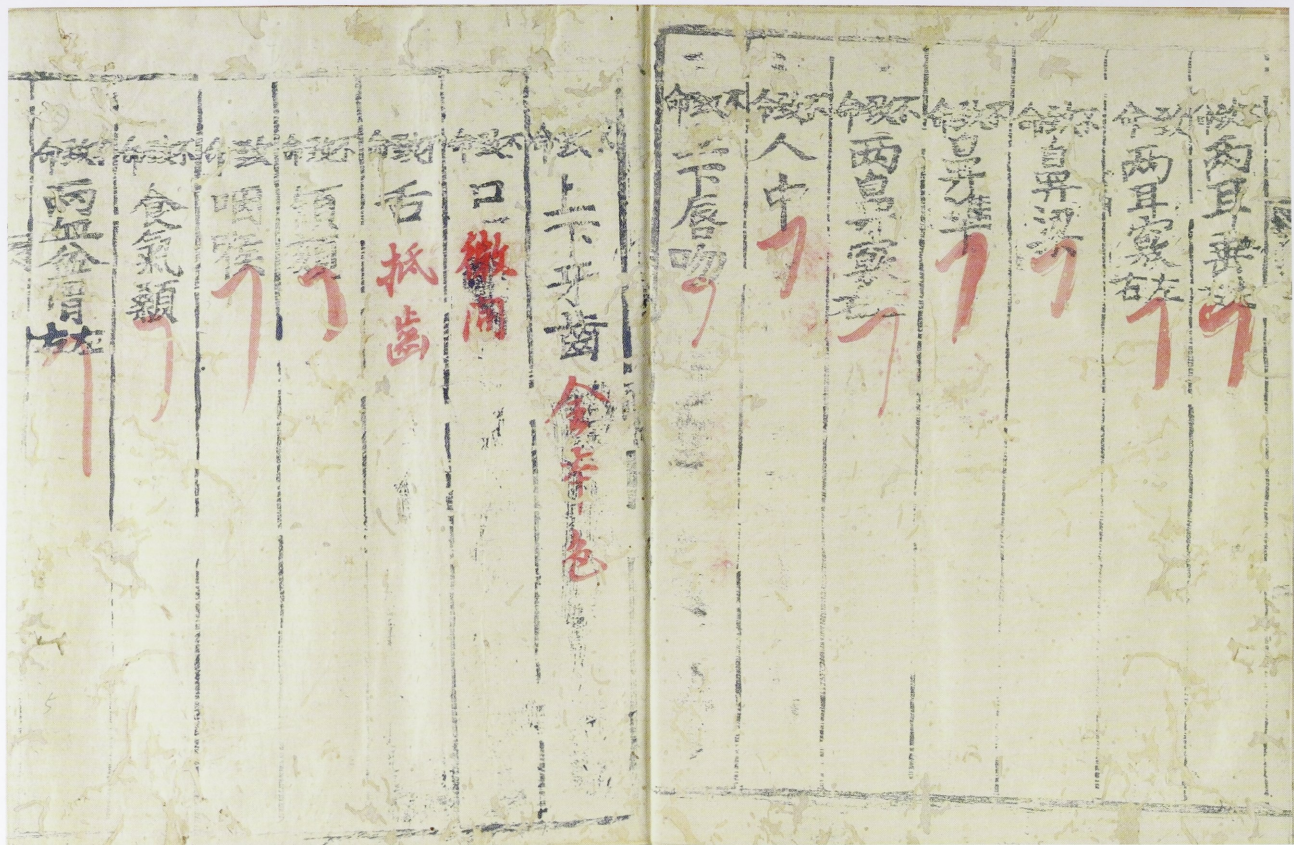 不致命兩耳垂
致命兩耳竅左右
不致命鼻梁
不致命鼻準
不致命兩鼻竅
不致命人中
不致命唇吻
不致命上下牙齒全本色
不致命口微開
不致命舌抵齒
不致命頷頦
致命咽喉
不致命食氣顙
不致命兩血盆骨左右